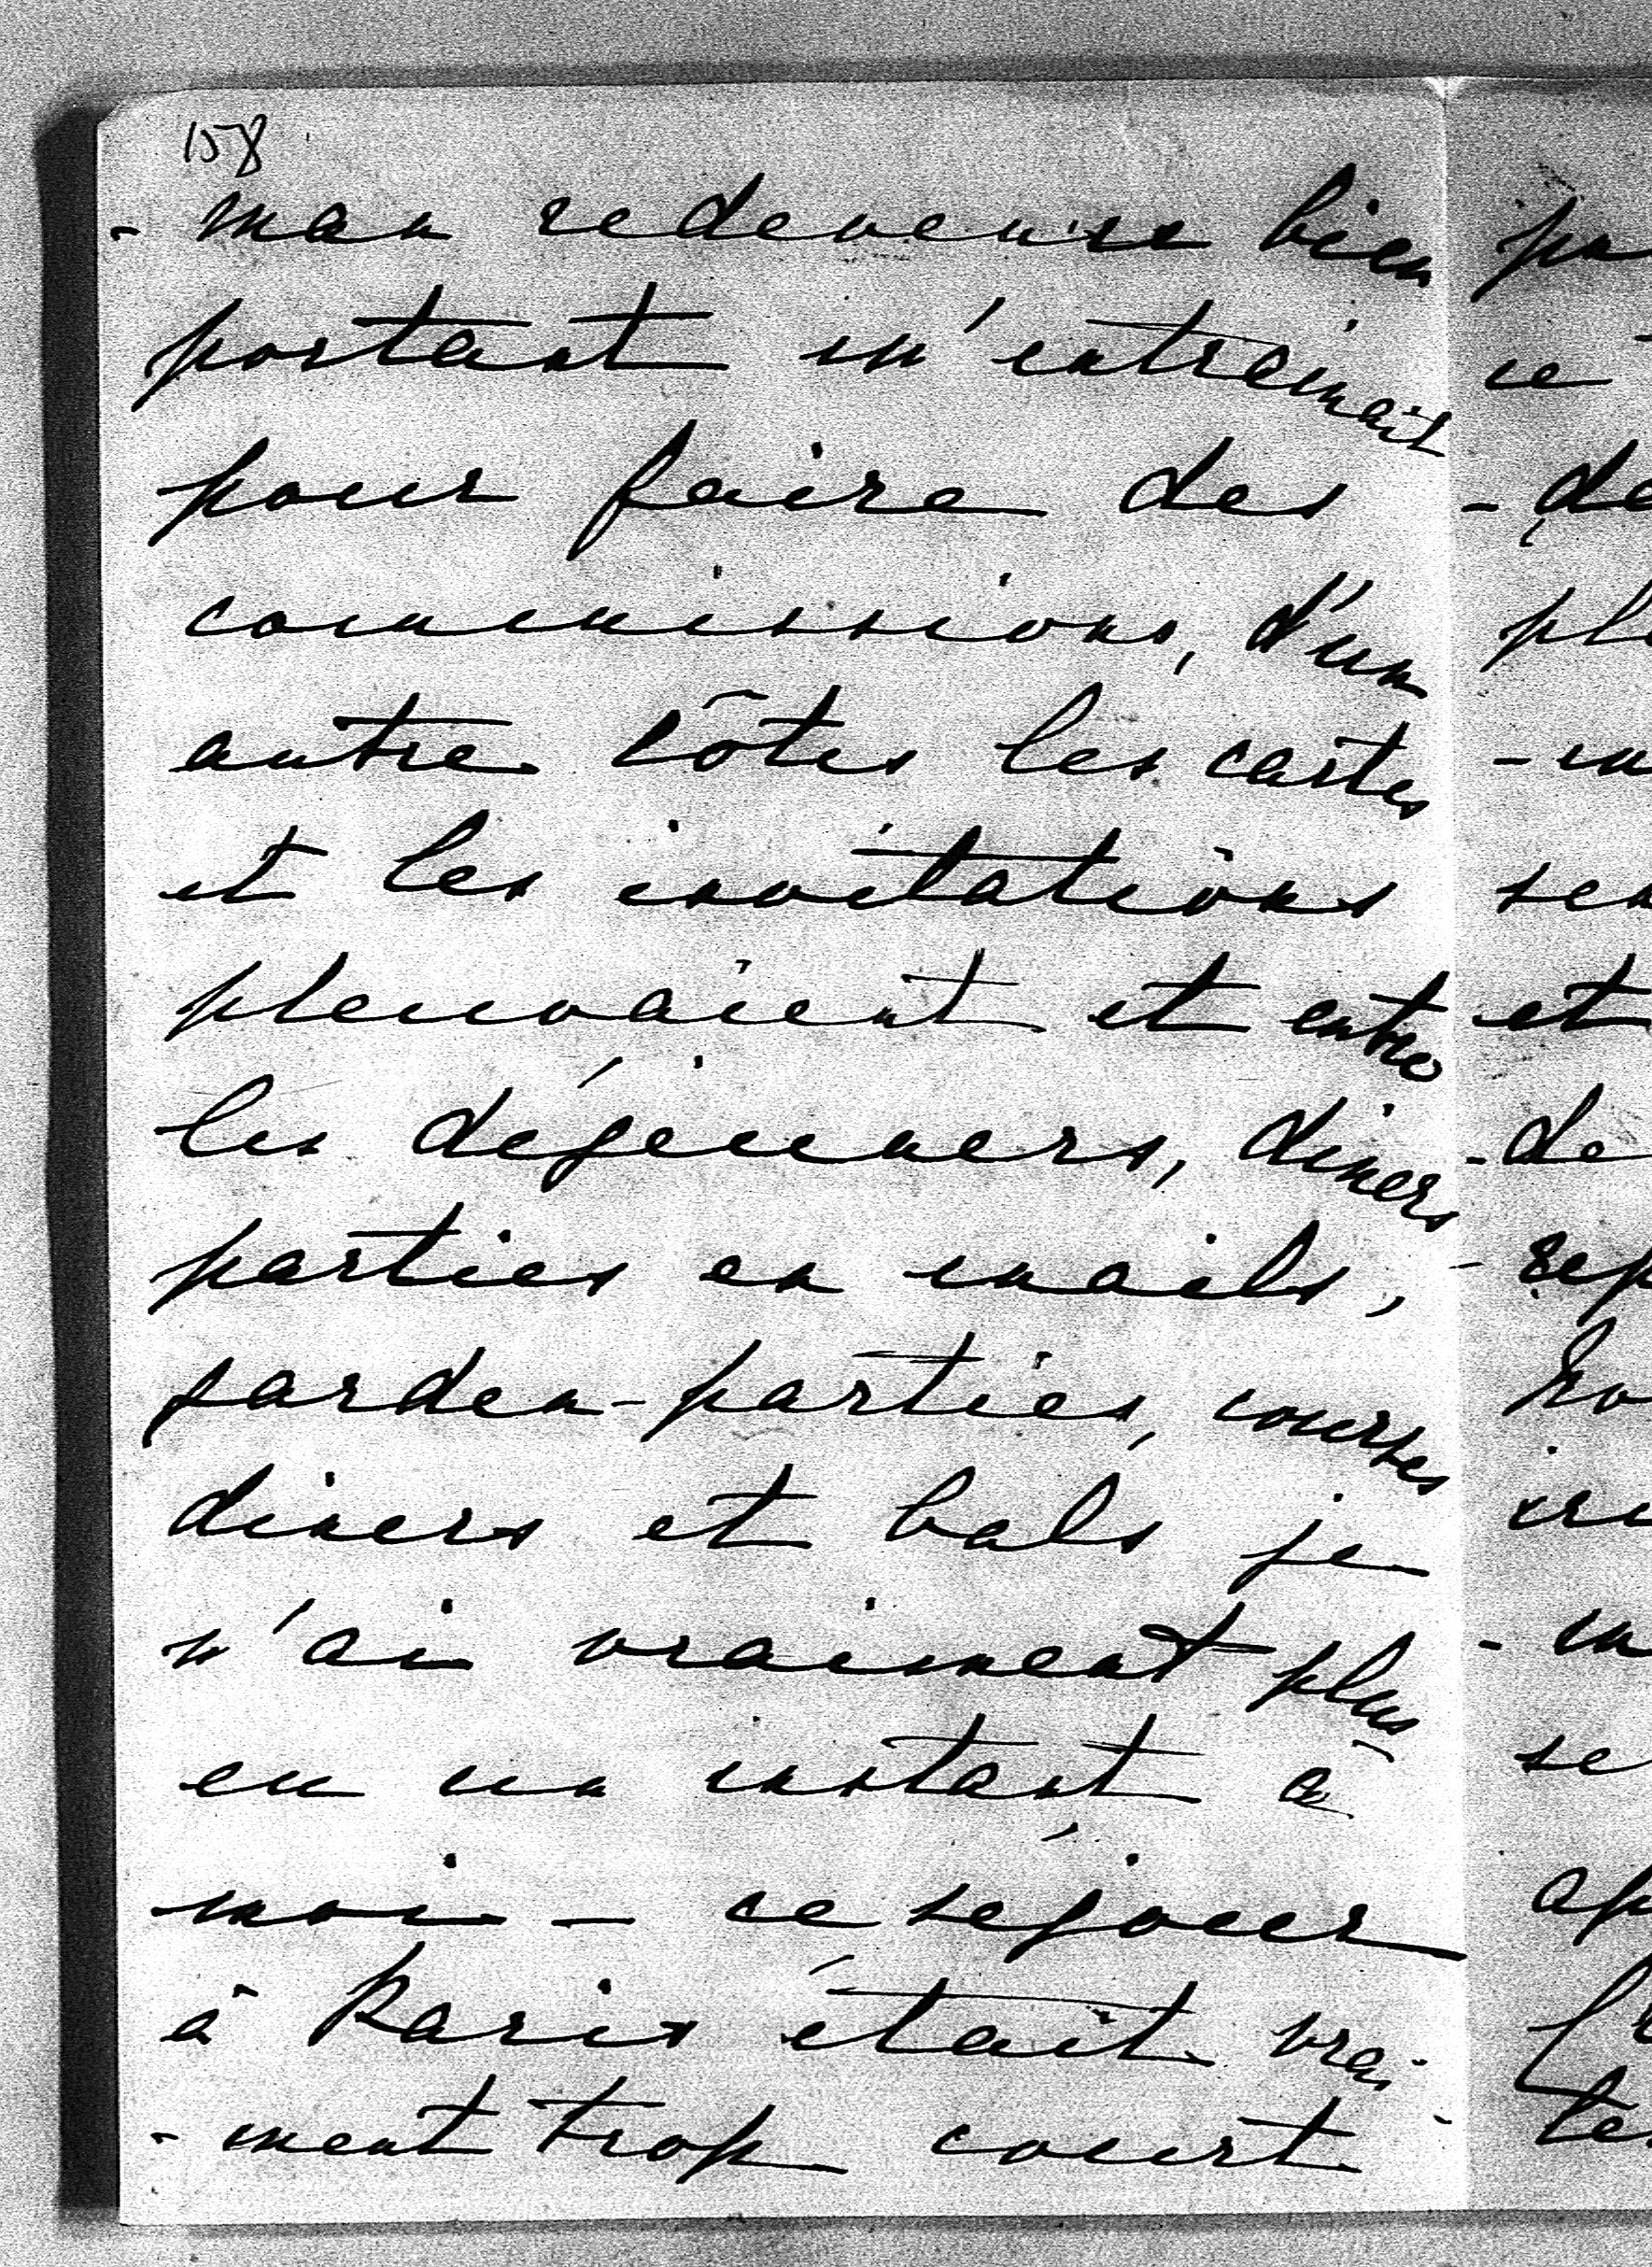 158
- man redevenue bien
portant m'entrainait
pour faire des
commissions, d'un
autre côtes les cartes
et les invitations
pleuvaient et entre
les déjeuners, diners
parties en mails,
garden-parties, courses
diners et bals je
n'ai vraiment plus
eu un instant à
moi - ce séjour
à Paris était vrai
- ment trop court